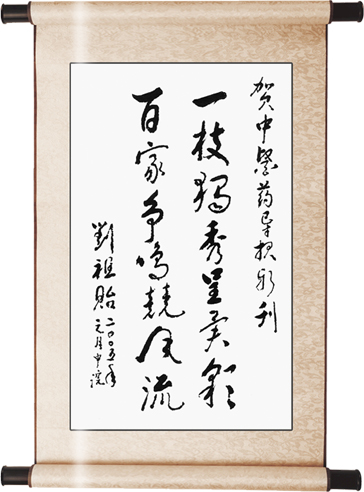 贺中医药导报新刊
一枝獨秀呈异彩
百家争鸣竞風流
劉祖贻
二〇〇五年
元月中浣